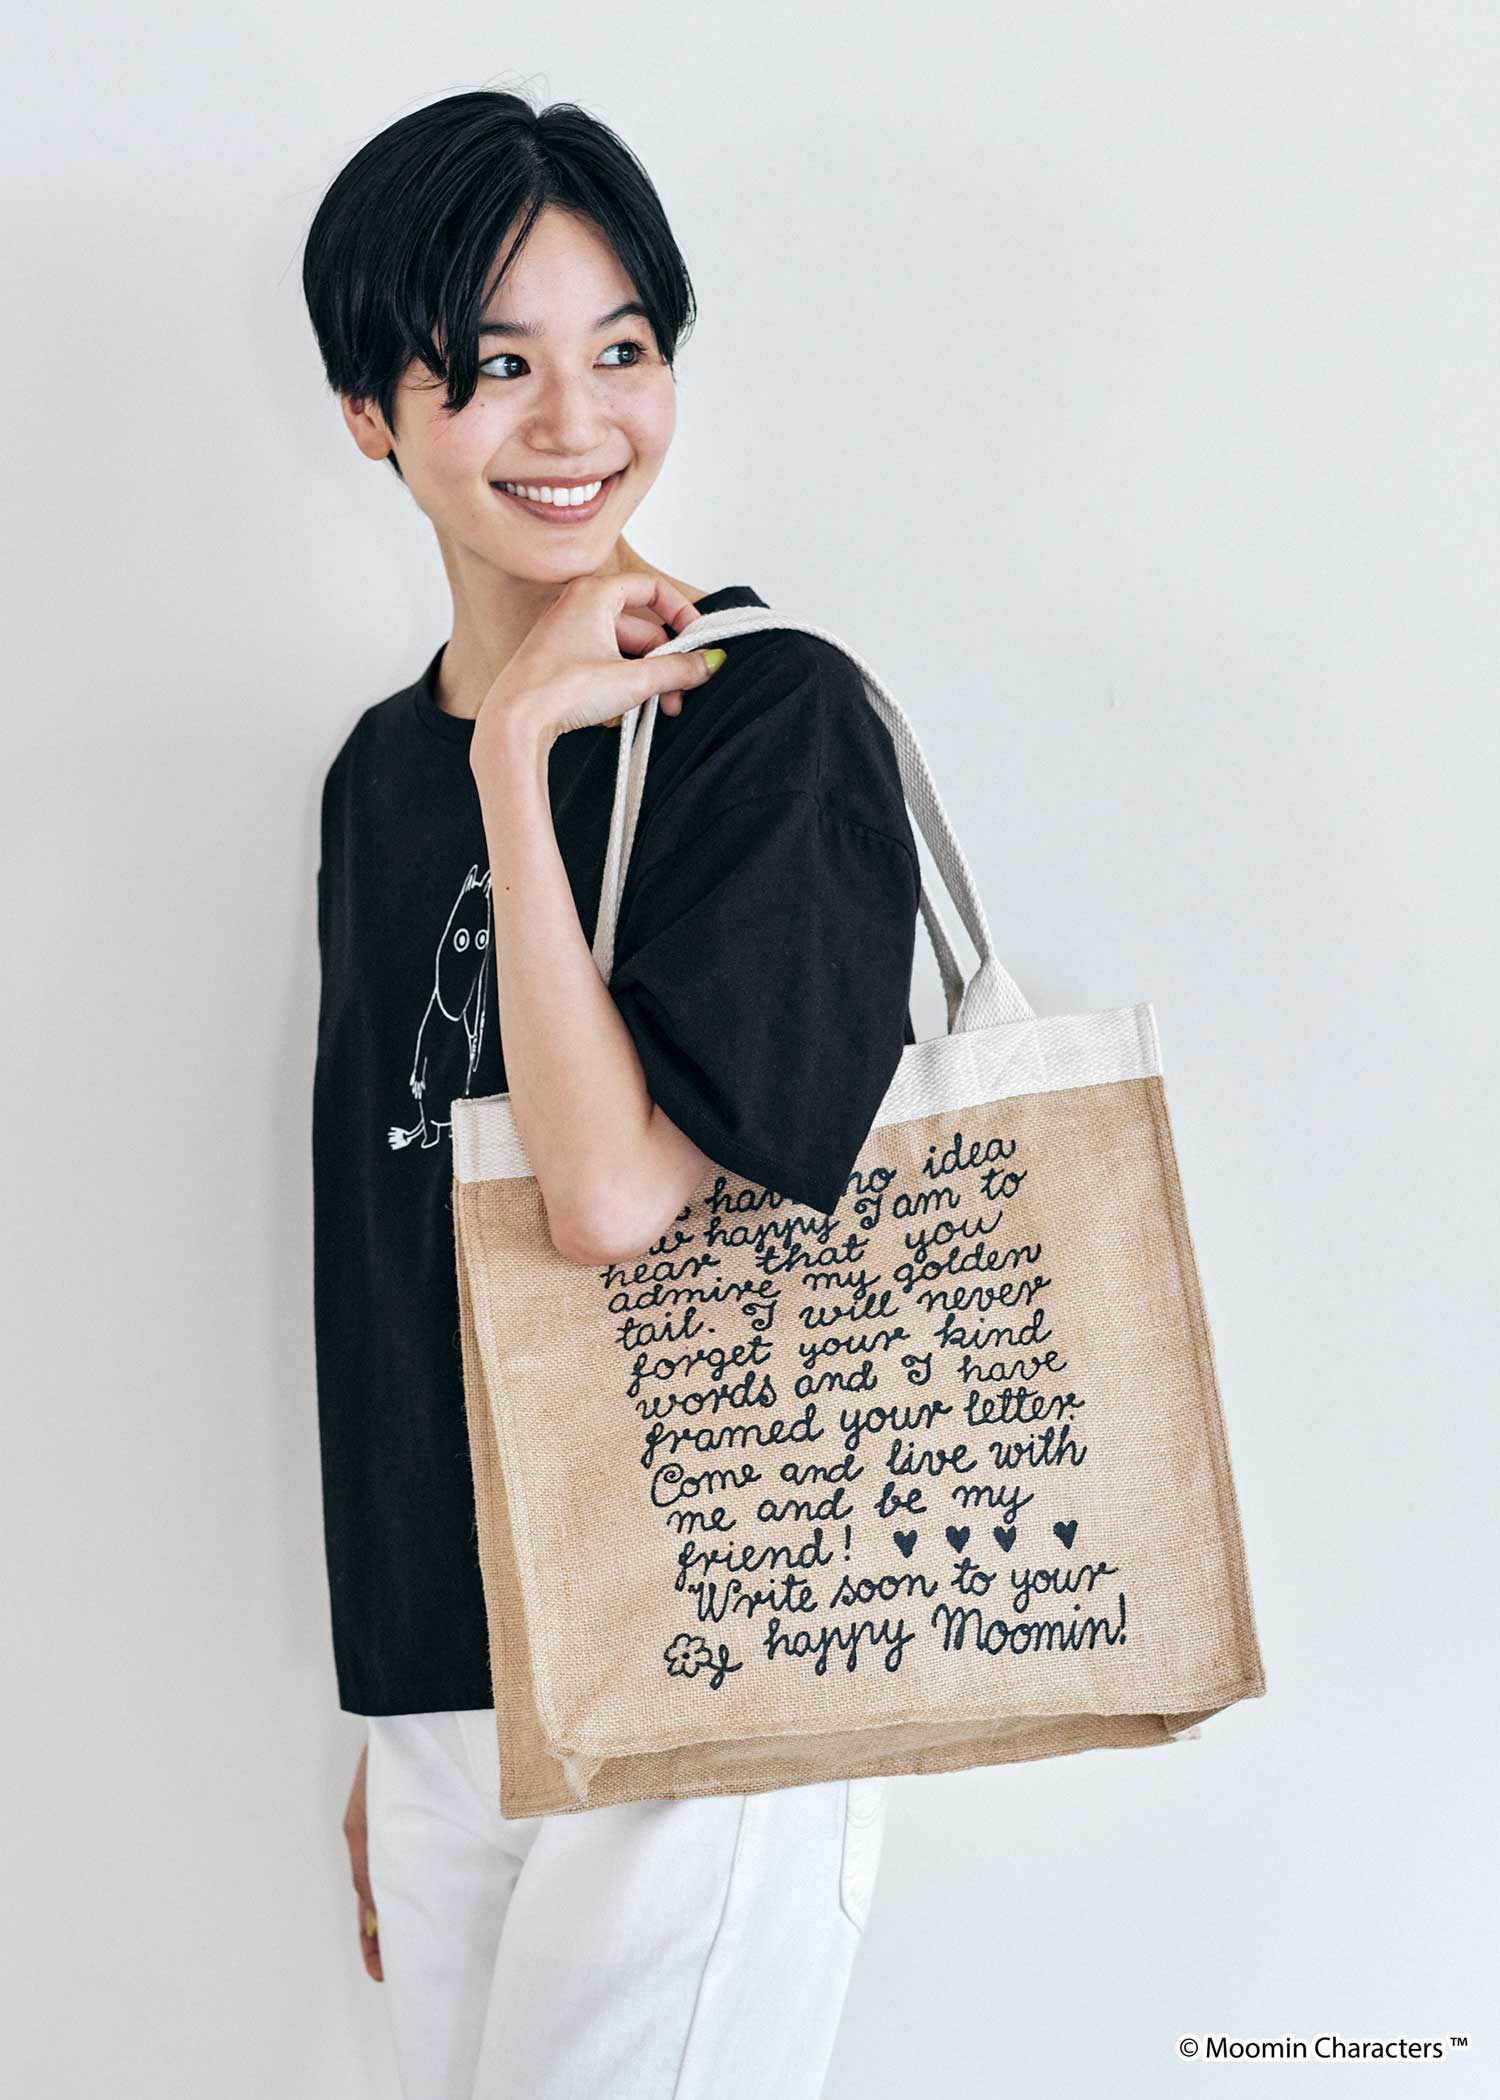 have no idea
happy I am to
hear that you
admire my golden
tail. I will never
forget your kind
words and I have
framed your letter.
Come and live with
me and be my
friend! ♥ ♥ ♥ ♥
Write soon to your
happy Moomin!
© Moomin Characters ™